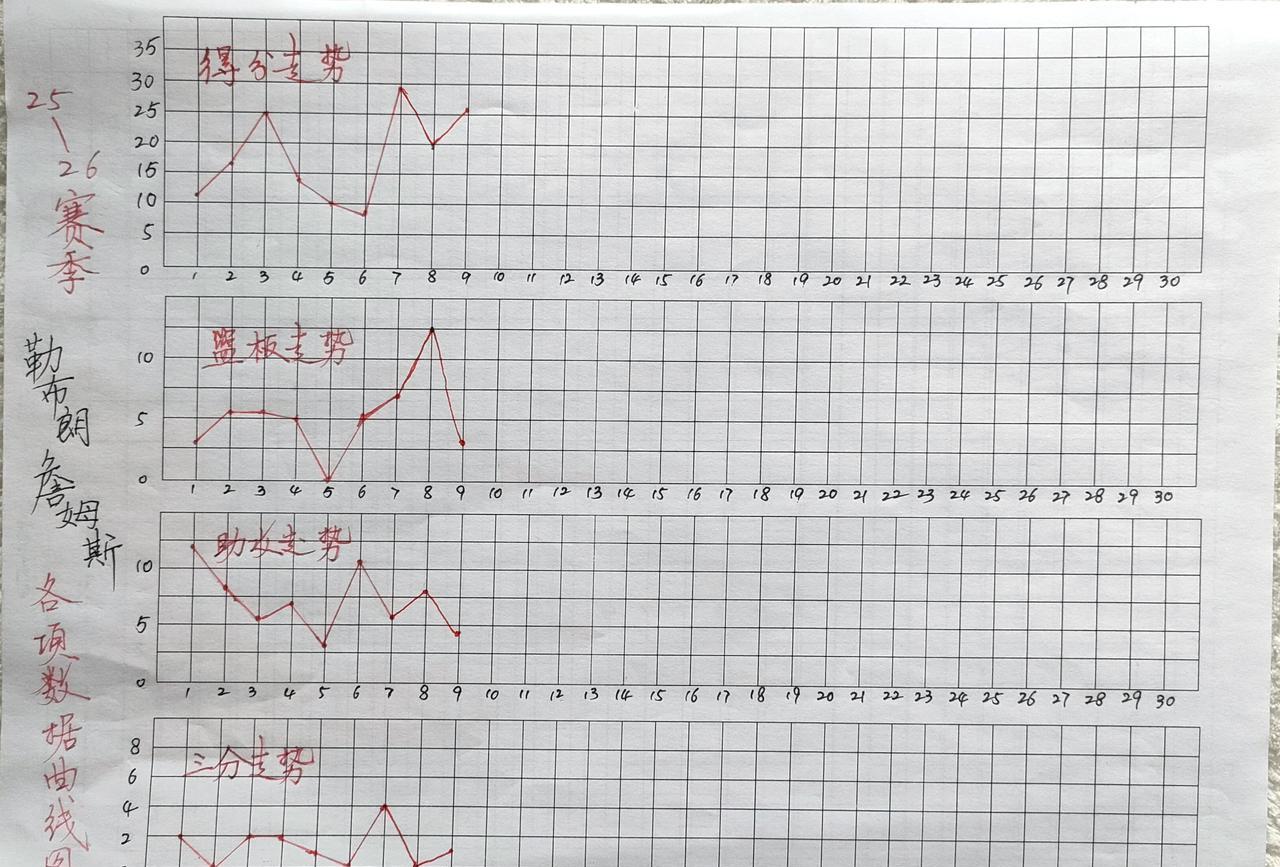 25
\
26
赛季
勒布朗
詹姆斯
各项数据曲线图
得分走势
35
30
25
20
15
10
5
0
1 2 3 4 5 6 7 8 9 10 11 12 13 14 15 16 17 18 19 20 21 22 23 24 25 26 27 28 29 30
篮板走势
10
5
0
1 2 3 4 5 6 7 8 9 10 11 12 13 14 15 16 17 18 19 20 21 22 23 24 25 26 27 28 29 30
助攻走势
10
5
0
1 2 3 4 5 6 7 8 9 10 11 12 13 14 15 16 17 18 19 20 21 22 23 24 25 26 27 28 29 30
三分走势
8
6
4
2